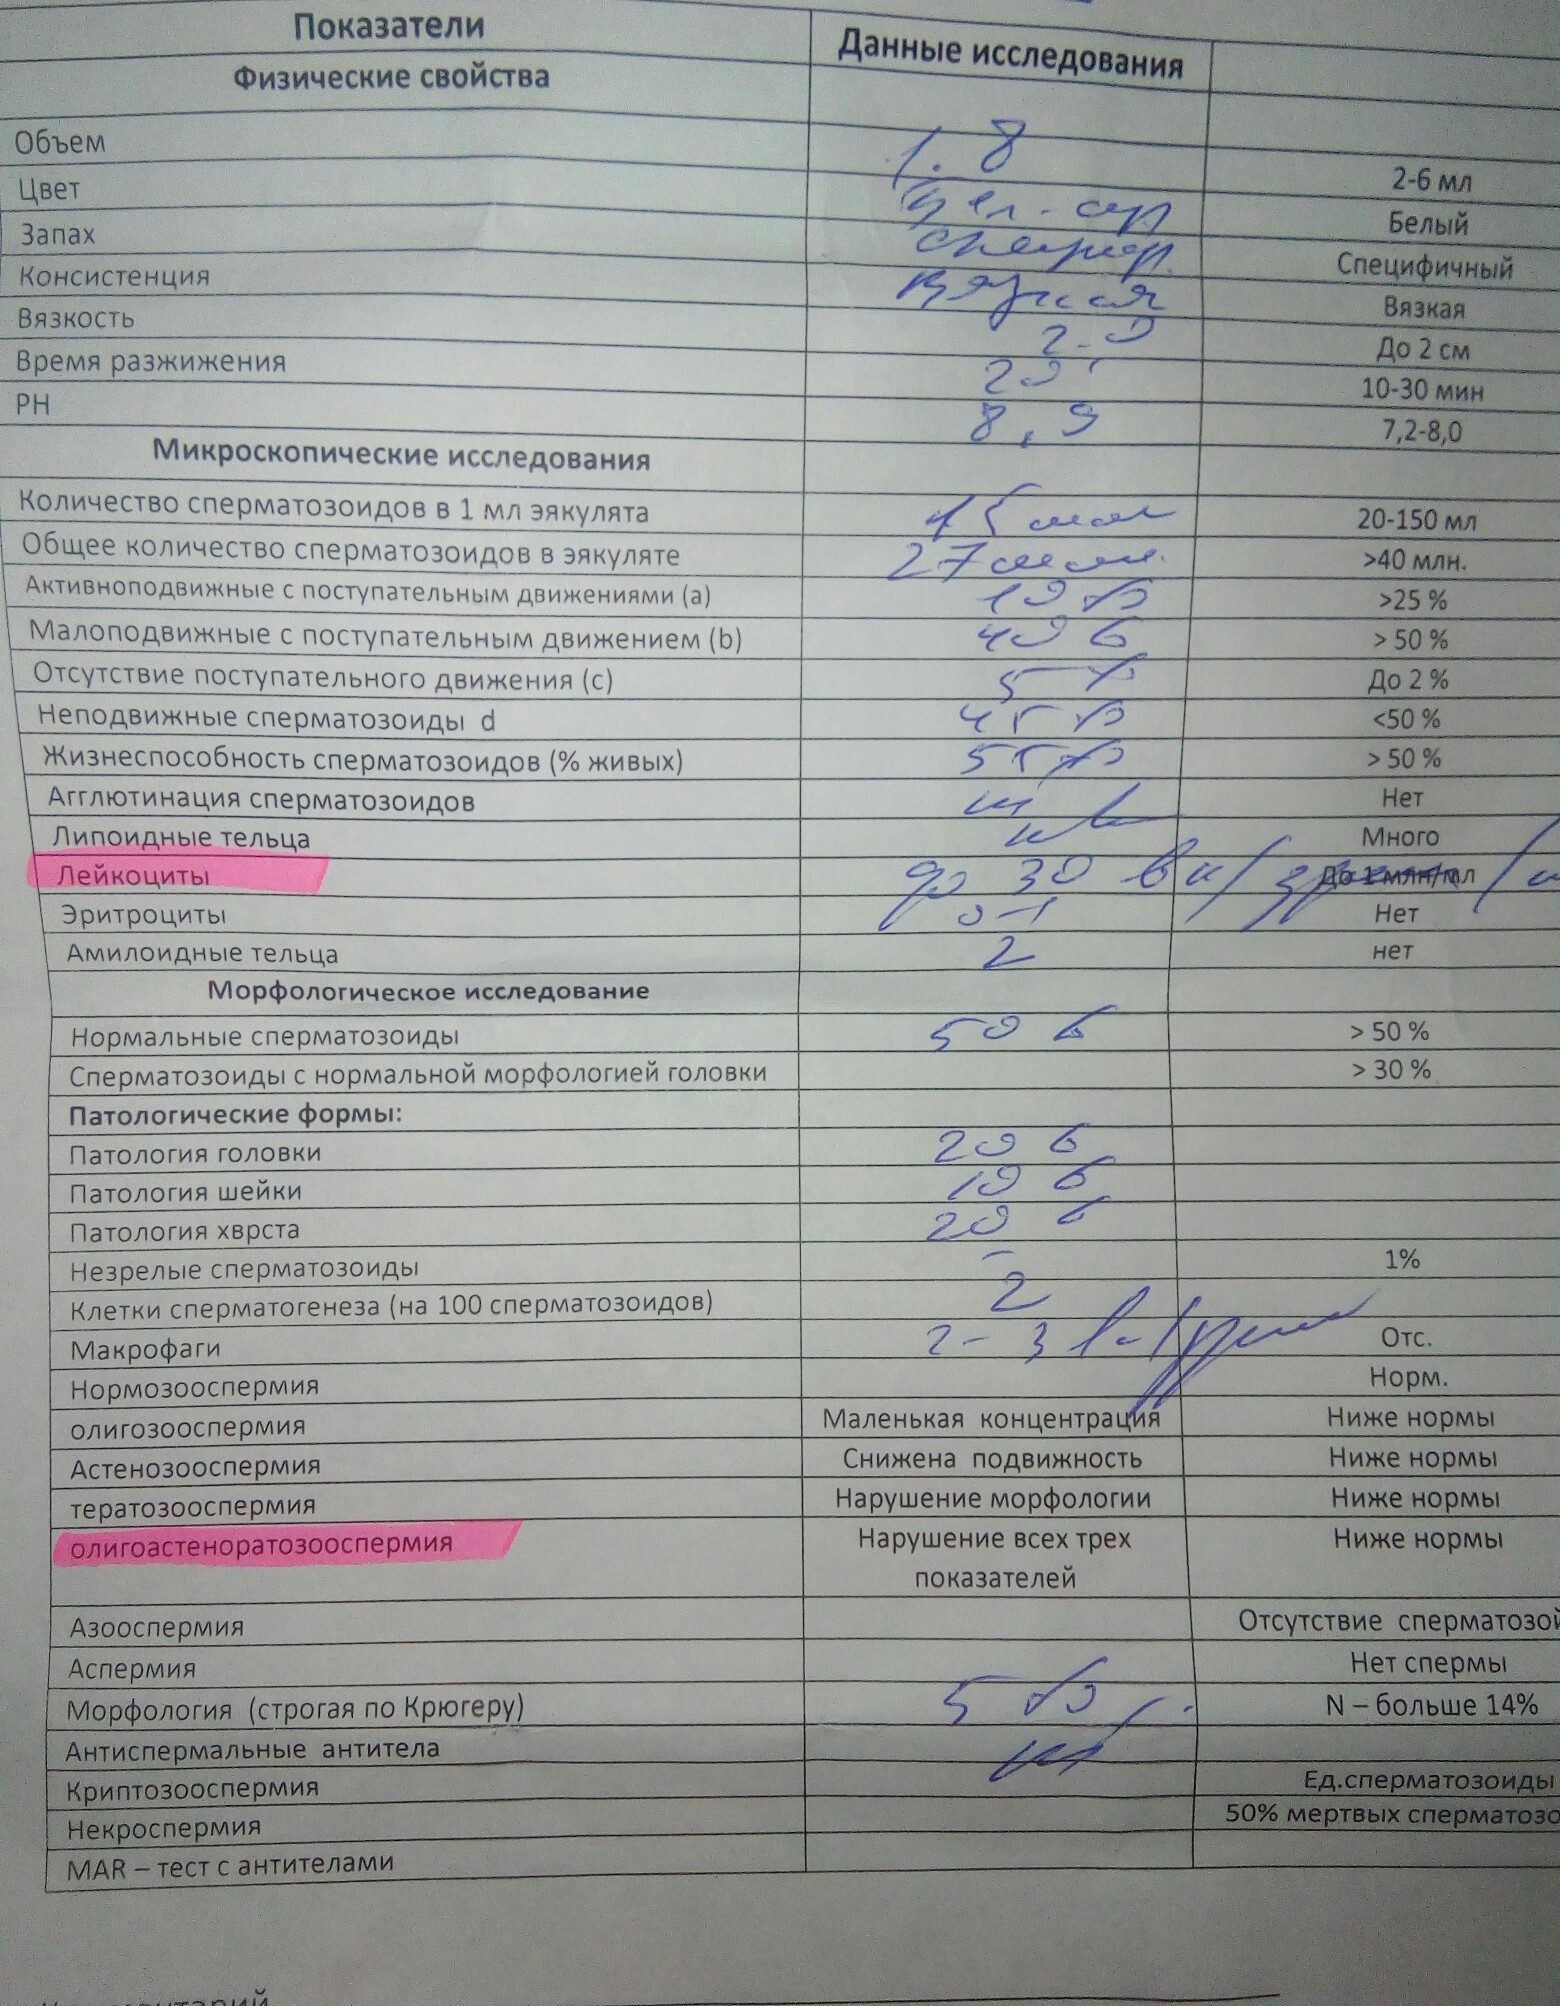 Показатели Данные исследования
Физические свойства
Объем 1.8 2-6 мл
Цвет Белый
Запах Специфичный
Консистенция вязкая Вязкая
Вязкость 2.0 До 2 см
Время разжижения 20' 10-30 мин
РН 8,9 7,2-8,0
Микроскопические исследования
Количество сперматозоидов в 1 мл эякулята 15 млн 20-150 мл
Общее количество сперматозоидов в эякуляте 27 млн. >40 млн.
Активноподвижные с поступательным движениями (a) 10 % >25 %
Малоподвижные с поступательным движением (b) 40 % > 50 %
Отсутствие поступательного движения (c) 5 % До 2 %
Неподвижные сперматозоиды d 45 % <50 %
Жизнеспособность сперматозоидов (% живых) 55 % > 50 %
Агглютинация сперматозоидов Нет
Липоидные тельца Много
Лейкоциты до 30 в п/зрения До 1 млн/мл
Эритроциты 0-1 Нет
Амилоидные тельца 2 нет
Морфологическое исследование
Нормальные сперматозоиды 50 % > 50 %
Сперматозоиды с нормальной морфологией головки > 30 %
Патологические формы:
Патология головки 20 %
Патология шейки 10 %
Патология хврста 20 %
Незрелые сперматозоиды - 1%
Клетки сперматогенеза (на 100 сперматозоидов) 2
Макрофаги 2-3 Отс.
Нормозооспермия Норм.
олигозооспермия Маленькая концентрация Ниже нормы
Астенозооспермия Снижена подвижность Ниже нормы
тератозооспермия Нарушение морфологии Ниже нормы
олигоастеноратозооспермия Нарушение всех трех Ниже нормы
показателей
Азооспермия Отсутствие сперматозой
Аспермия Нет спермы
Морфология (строгая по Крюгеру) 5 % N – больше 14%
Антиспермальные антитела
Криптозооспермия Ед.сперматозоиды
Некроспермия 50% мертвых сперматозо
MAR – тест с антителами